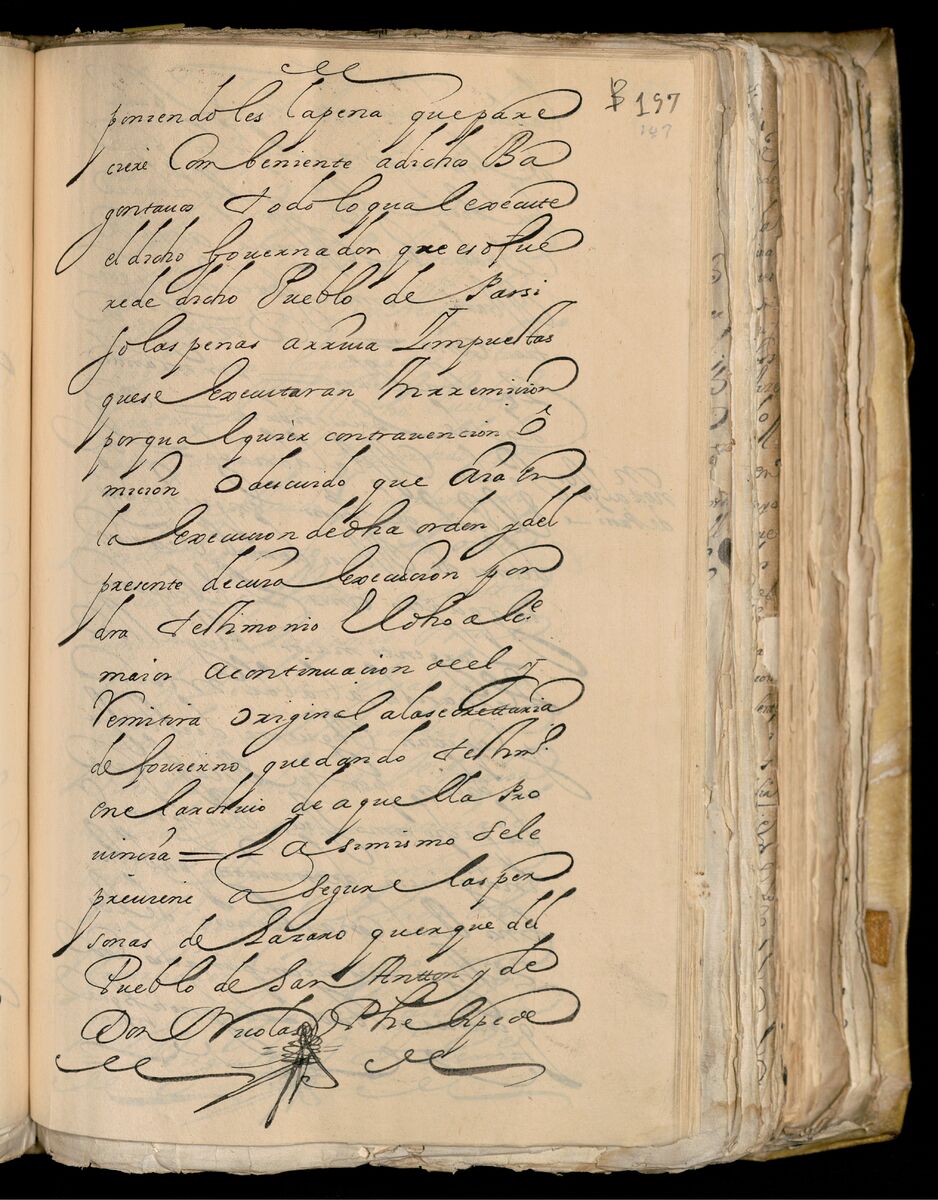 197
147
poniendoles lapena quepare
ciere Combeniente adichos Ba
gontaos todo loqual execute
el dicho Governador que esofue
rede dicho Pueblo de Parsi
so laspenas arriva Impuestas
quese executaran Inrremicion
porqualquier contravencion ô
micion o descuido que aia en
la execucion dedha orden y del
presente decuia execucion pon
dra testimonio El dho alce
maior acontinuacion de el y
Remitira original alasecrettaria
de Govierno quedando testimo
enel archivo de aquella Pro
vincia = Y asimismo sele
previene asegure lasper
sonas de Lazaro querque del
Pueblo de San Antton y de
Don Nicolas Phelipe de